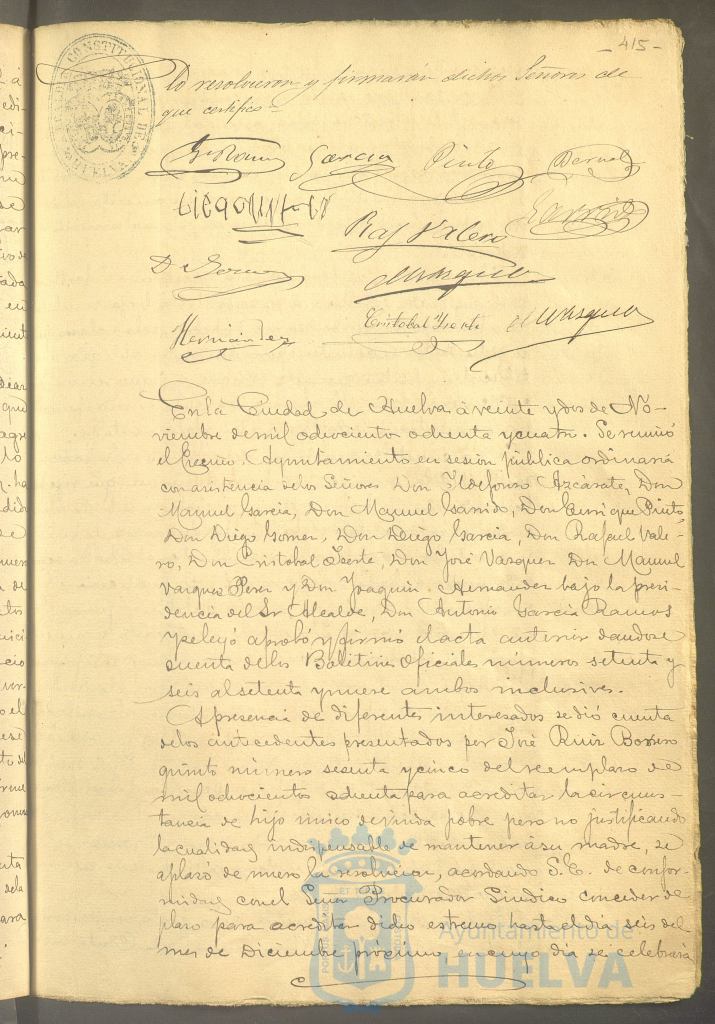 -415-
AYUNTAMIENTO CONSTITUCIONAL DE HUELVA
lo resolvieron y firmarán dichos Señores de
que certifico=
García Pinto Bernal
Raf Valero Garrido
D. Gomez Vazquez
Hernández Cristobal Ysorte Vazquez
En la Ciudad de Huelva à veinte y dos de No-
viembre de mil ochocientos ochenta y cuatro. Se reunió
el Excmo. Ayuntamiento en sesión publica ordinaria
con asistencia de los Señores Don Ildefonso Azcárate, Don
Manuel García, Don Manuel Garrido, Don Enrique Pinto,
Don Diego Gomez, Don Diego García, Don Rafael Vale-
ro, Don Cristobal Ysorte, Don José Vazquez Don Manuel
Vazquez Perez y Don Joaquin Hernandez bajo la presi-
dencia del Sr Alcalde, Don Antonio García Ramos
y se leyó aprobó y firmó el acta anterior dandose
cuenta de los Boletines Oficiales números setenta y
seis al setenta y nueve ambos inclusives.
A presencia de diferentes interesados se dió cuenta
de los antecedentes presentados por José Ruiz Borrero
quinto número sesenta y cinco del reemplazo de
mil ochocientos ochenta para acreditar la circuns-
tancia de hijo unico de viuda pobre pero no justificando
la cualidad indispensable de mantener à su madre, se
aplazó de nuevo la resolucion, acordando S.E. de confor-
midad con el Señor Procurador Sindico conceder de
plazo para acreditar dicho estremo hasta el dia seis del
mes de Diciembre proximo en cuyo dia se celebrará
Ayuntamiento de
HUELVA